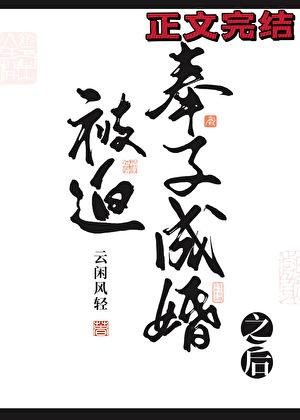 正文完结
被迫
奉子成婚
之后
云闲风轻
著